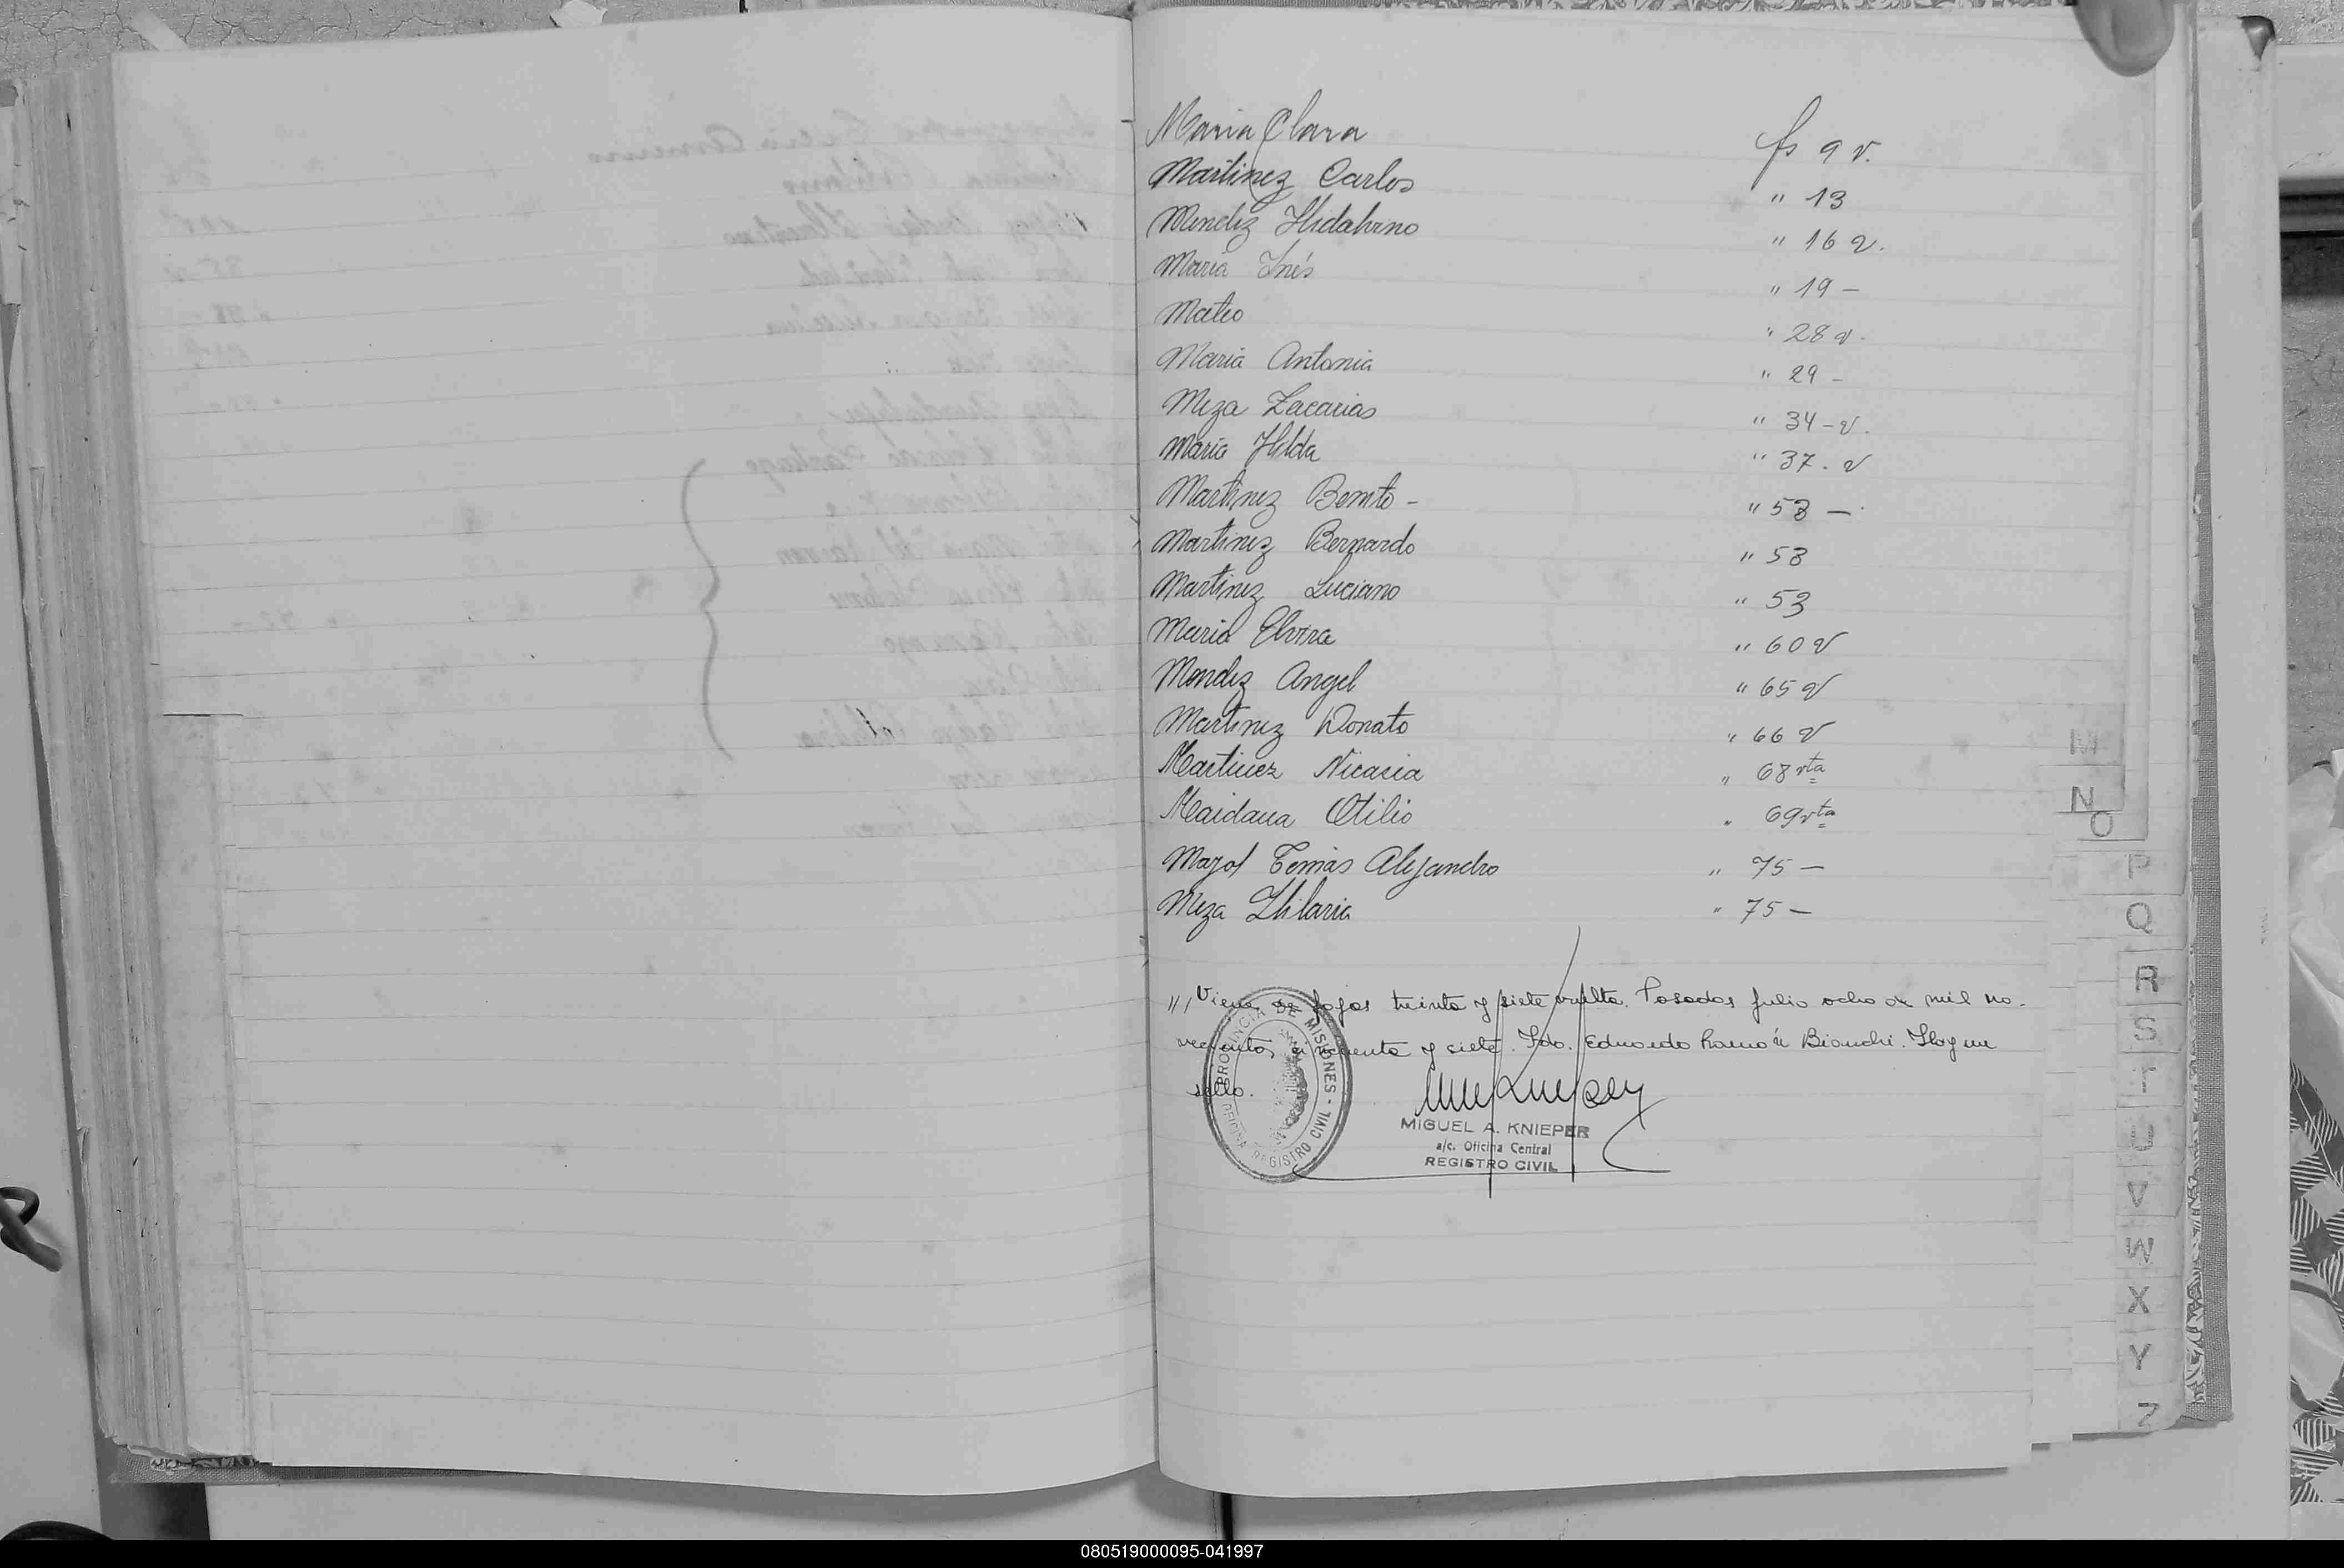 Maria Clara fs 9 v.
Martinez Carlos " 13
Mendez Hidalvino " 16 v.
Maria Inés " 19 -
Mateo " 28 v.
Maria Antonia " 29 -
Meza Zacarias " 34 - v.
Maria Hilda " 37. v
Martinez Benito - " 53 -
Martinez Bernardo " 53
Martinez Luciano " 53
Maria Elvira " 60 v
Mendez Angel " 65 v
Martinez Donato " 66 v
Martinez Nicasia " 68 vta
Maidana Otilio " 69 vta
Mazol Tomás Alejandro " 75 -
Meza Hilaria " 75 -
// Viene de fojas treinta y siete vuelta. Posadas julio ocho de mil no-
vecientos cincuenta y siete. Fdo. Eduardo Ramón Bianchi. Hay un
sello.
PROVINCIA DE MISIONES - OFICINA REGISTRO CIVIL
MIGUEL A. KNIEPER
a/c. Oficina Central
REGISTRO CIVIL
M
N
O
P
Q
R
S
T
U
V
W
X
Y
Z
080519000095-041997